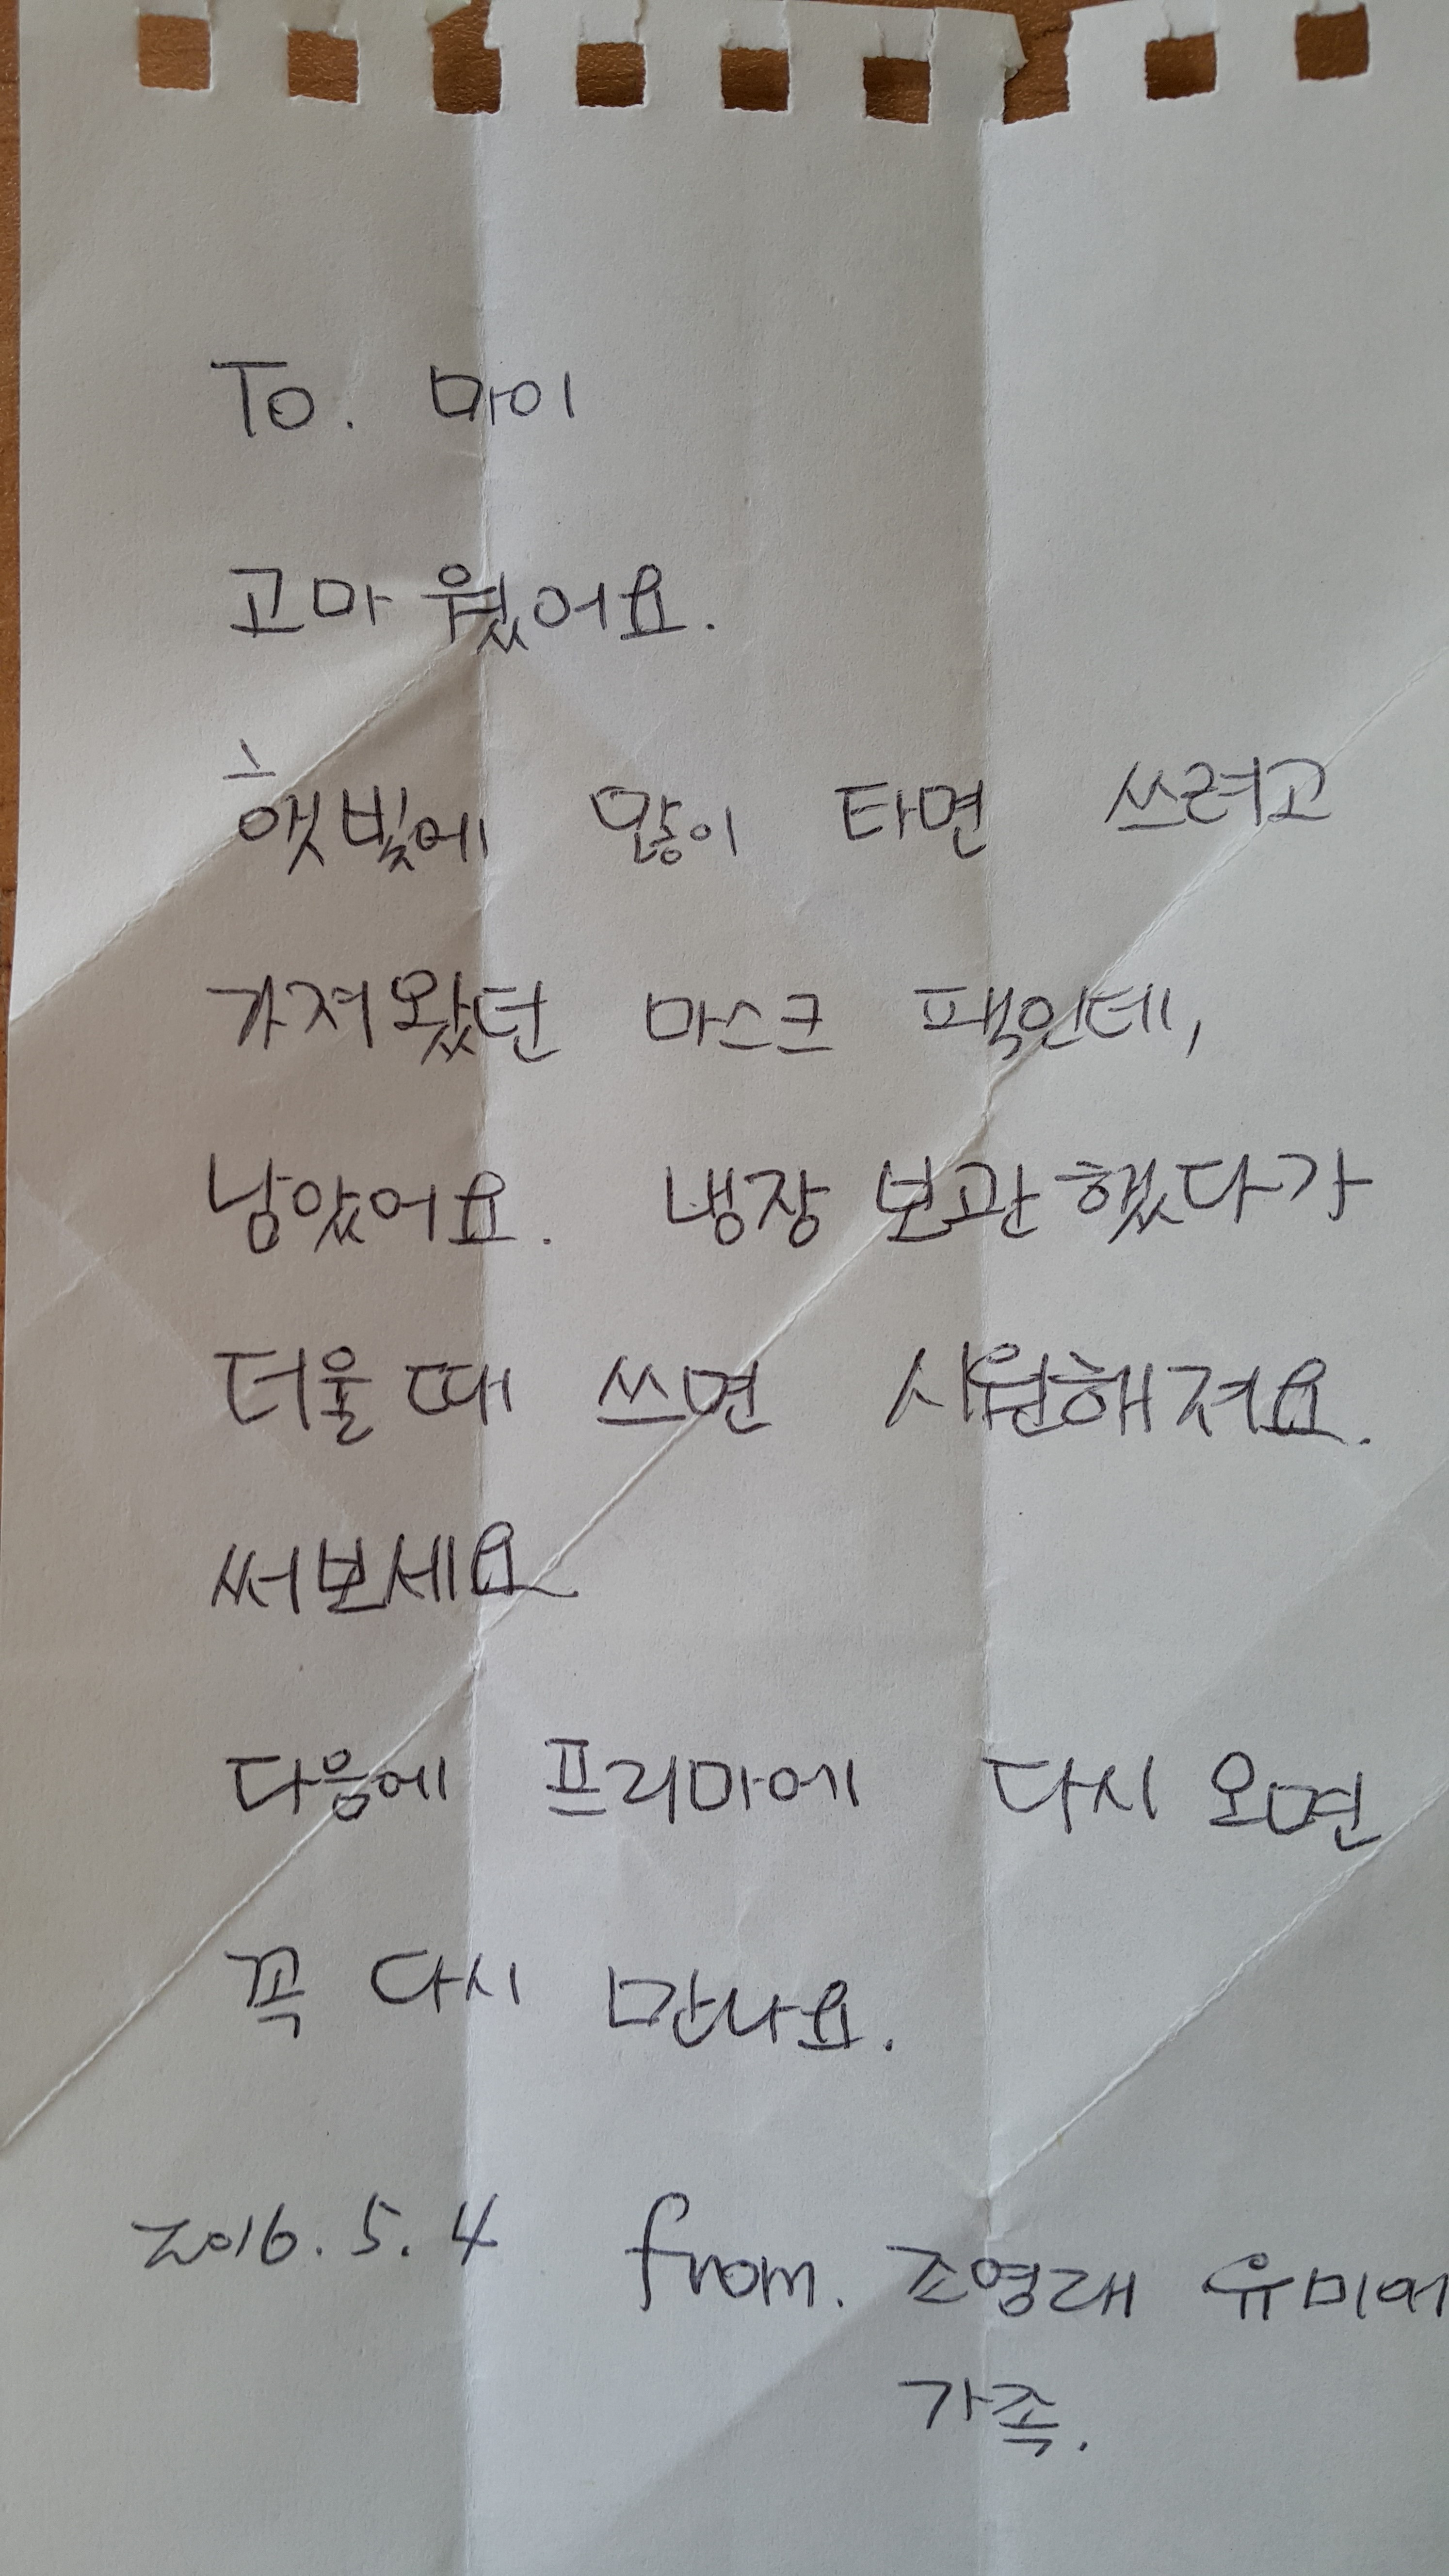 To. 마이
고마웠어요.
햇빛에 많이 타면 쓰려고
가져왔던 마스크 팩인데,
남았어요. 냉장 보관했다가
더울 때 쓰면 시원해져요.
써보세요
다음에 프리마에 다시 오면
꼭 다시 만나요.
2016. 5. 4 from. 조영래 유미에
가족.